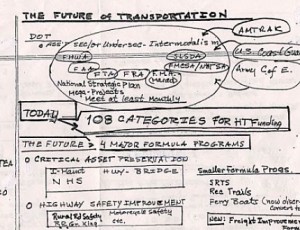 THE FUTURE OF TRANSPORTATION
DOT
Ass't Sec/or Undersec - Intermodalism
AMTRAK
U.S. Coast Guard
Army C. of E.
FHWA
SLSDA
FAA
FMCSA/NHTSA
FTA
FRA
(Marad)
National Strategic Plan
Mega-Projects
Meet at least Monthly
TODAY
108 CATEGORIES FOR HTFunding
THE FUTURE > 4 MAJOR FORMULA PROGRAMS
CRITICAL ASSET PRESERVATION
I-Maint
Hwy-BRIDGE
NHS
HIGHWAY SAFETY IMPROVEMENT
Rural Rd Safety
Motorcycle Safety
etc.
Smaller Formula Progs.
SRTS
Rec Trails
Ferry Boats (now discre
Converts to
NEW: Freight Improveme
Form